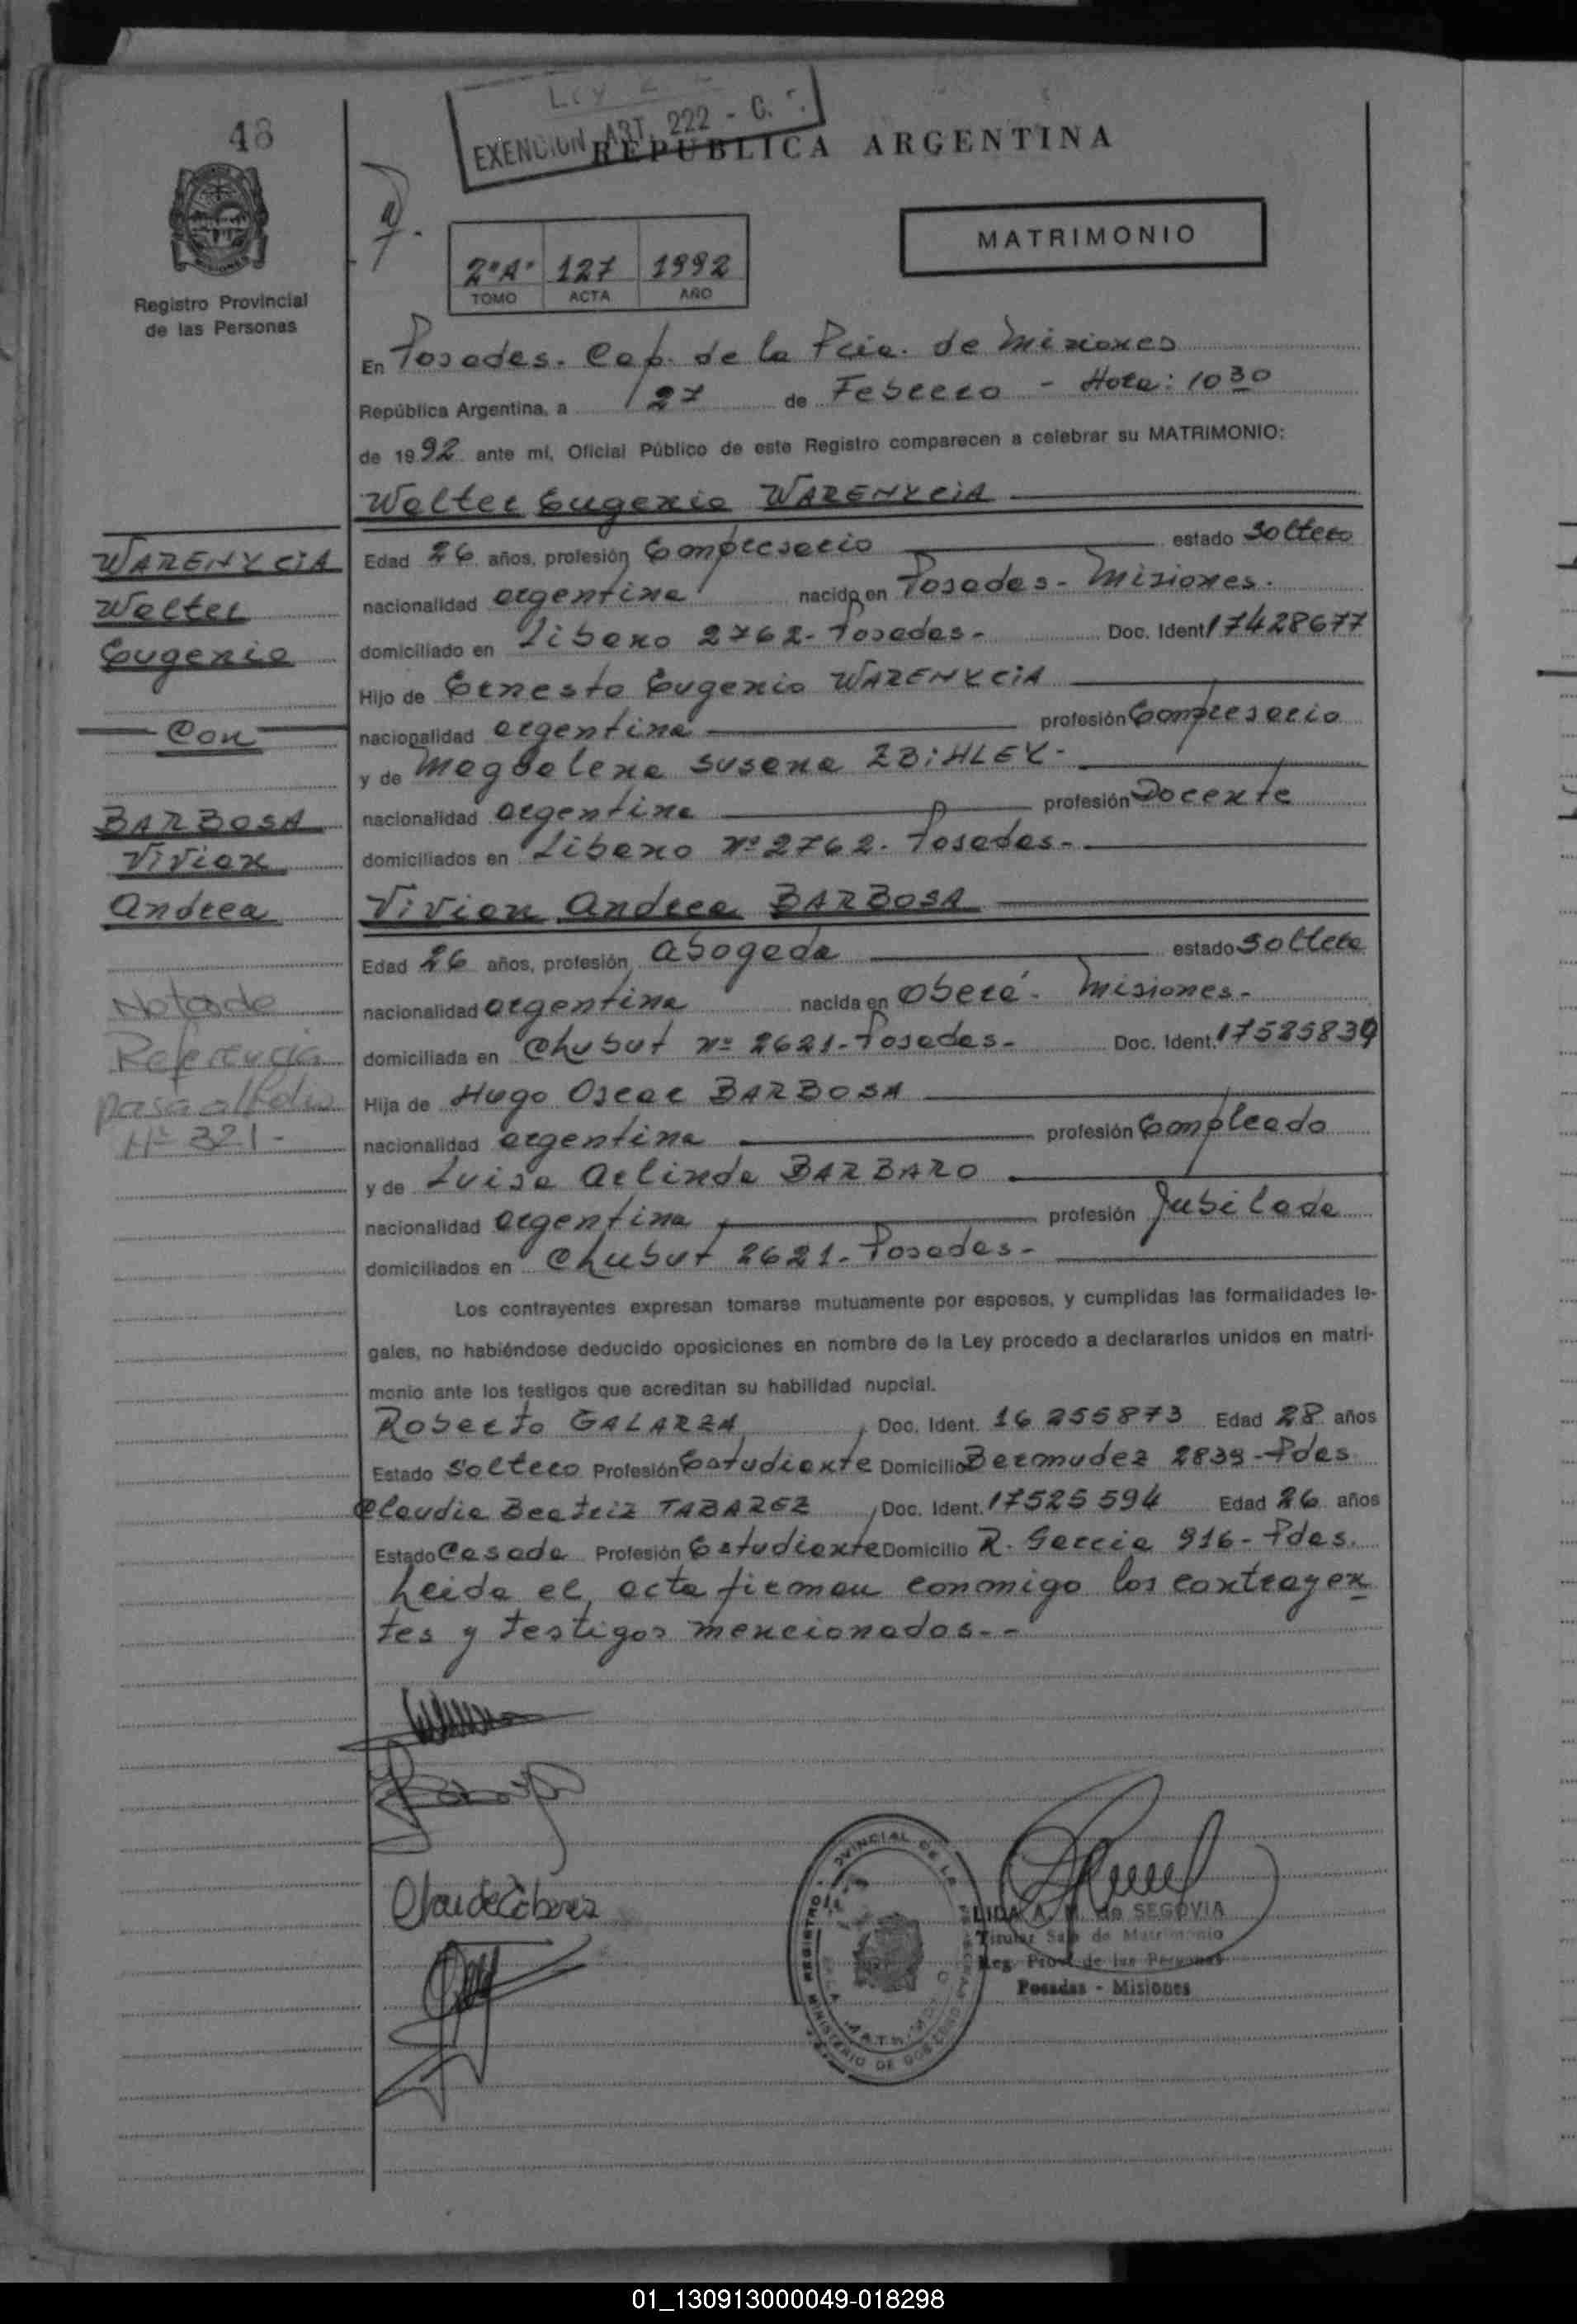 48
Ley
EXENCION ART. 222 - C.
REPUBLICA ARGENTINA
MATRIMONIO
2º A" 127 1992
TOMO ACTA AÑO
Registro Provincial
de las Personas
En Posadas. Cap. de la Pcia. de Misiones
República Argentina, a 27 de Febrero - Hora: 10 30
de 1992 ante mí, Oficial Público de este Registro comparecen a celebrar su MATRIMONIO:
Walter Eugenio WARENYCIA
WARENYCIA
Walter
Eugenio
Con
BARBOSA
Vivian
Andrea
Nota de
Referencia
pasa al folio
Nº 321-
Edad 26 años, profesión Empresario estado Soltero
nacionalidad argentina nacido en Posadas - Misiones.
domiciliado en Libano 2762- Posadas- Doc. Ident. 17428677
Hijo de Ernesto Eugenio WARENYCIA
nacionalidad argentina profesión Empresario
y de Magdalena Susana ZBIHLEY-
nacionalidad argentina profesión Docente
domiciliados en Libano nº 2762. Posadas-
Vivian Andrea BARBOSA
Edad 26 años, profesión abogada estado Soltera
nacionalidad argentina nacida en Oberá - Misiones-
domiciliada en Chubut nº 2621- Posadas- Doc. Ident. 17525839
Hija de Hugo Oscar BARBOSA
nacionalidad argentina profesión Empleado
y de Luisa Arlinda BARBARO
nacionalidad argentina profesión Jubilada
domiciliados en Chubut 2621- Posadas-
Los contrayentes expresan tomarse mutuamente por esposos, y cumplidas las formalidades le-
gales, no habiéndose deducido oposiciones en nombre de la Ley procedo a declararlos unidos en matri-
monio ante los testigos que acreditan su habilidad nupcial.
Roberto GALARZA, Doc. Ident. 16 255873 Edad 28 años
Estado Soltero Profesión Estudiante Domicilio Bermudez 2839-Pdas
Claudia Beatriz TABAREZ, Doc. Ident. 17525594 Edad 26 años
Estado Casada Profesión Estudiante Domicilio R. Garcia 916- Pdas.
Leida el acta firman conmigo los contrayen
tes y testigos mencionados--
LIDA A. M. de SEGOVIA
Titular Sala de Matrimonio
Reg. Prov. de las Personas
Posadas - Misiones
REGISTRO PROVINCIAL DE LAS
MINISTERIO DE GOBIERNO
01_130913000049-018298